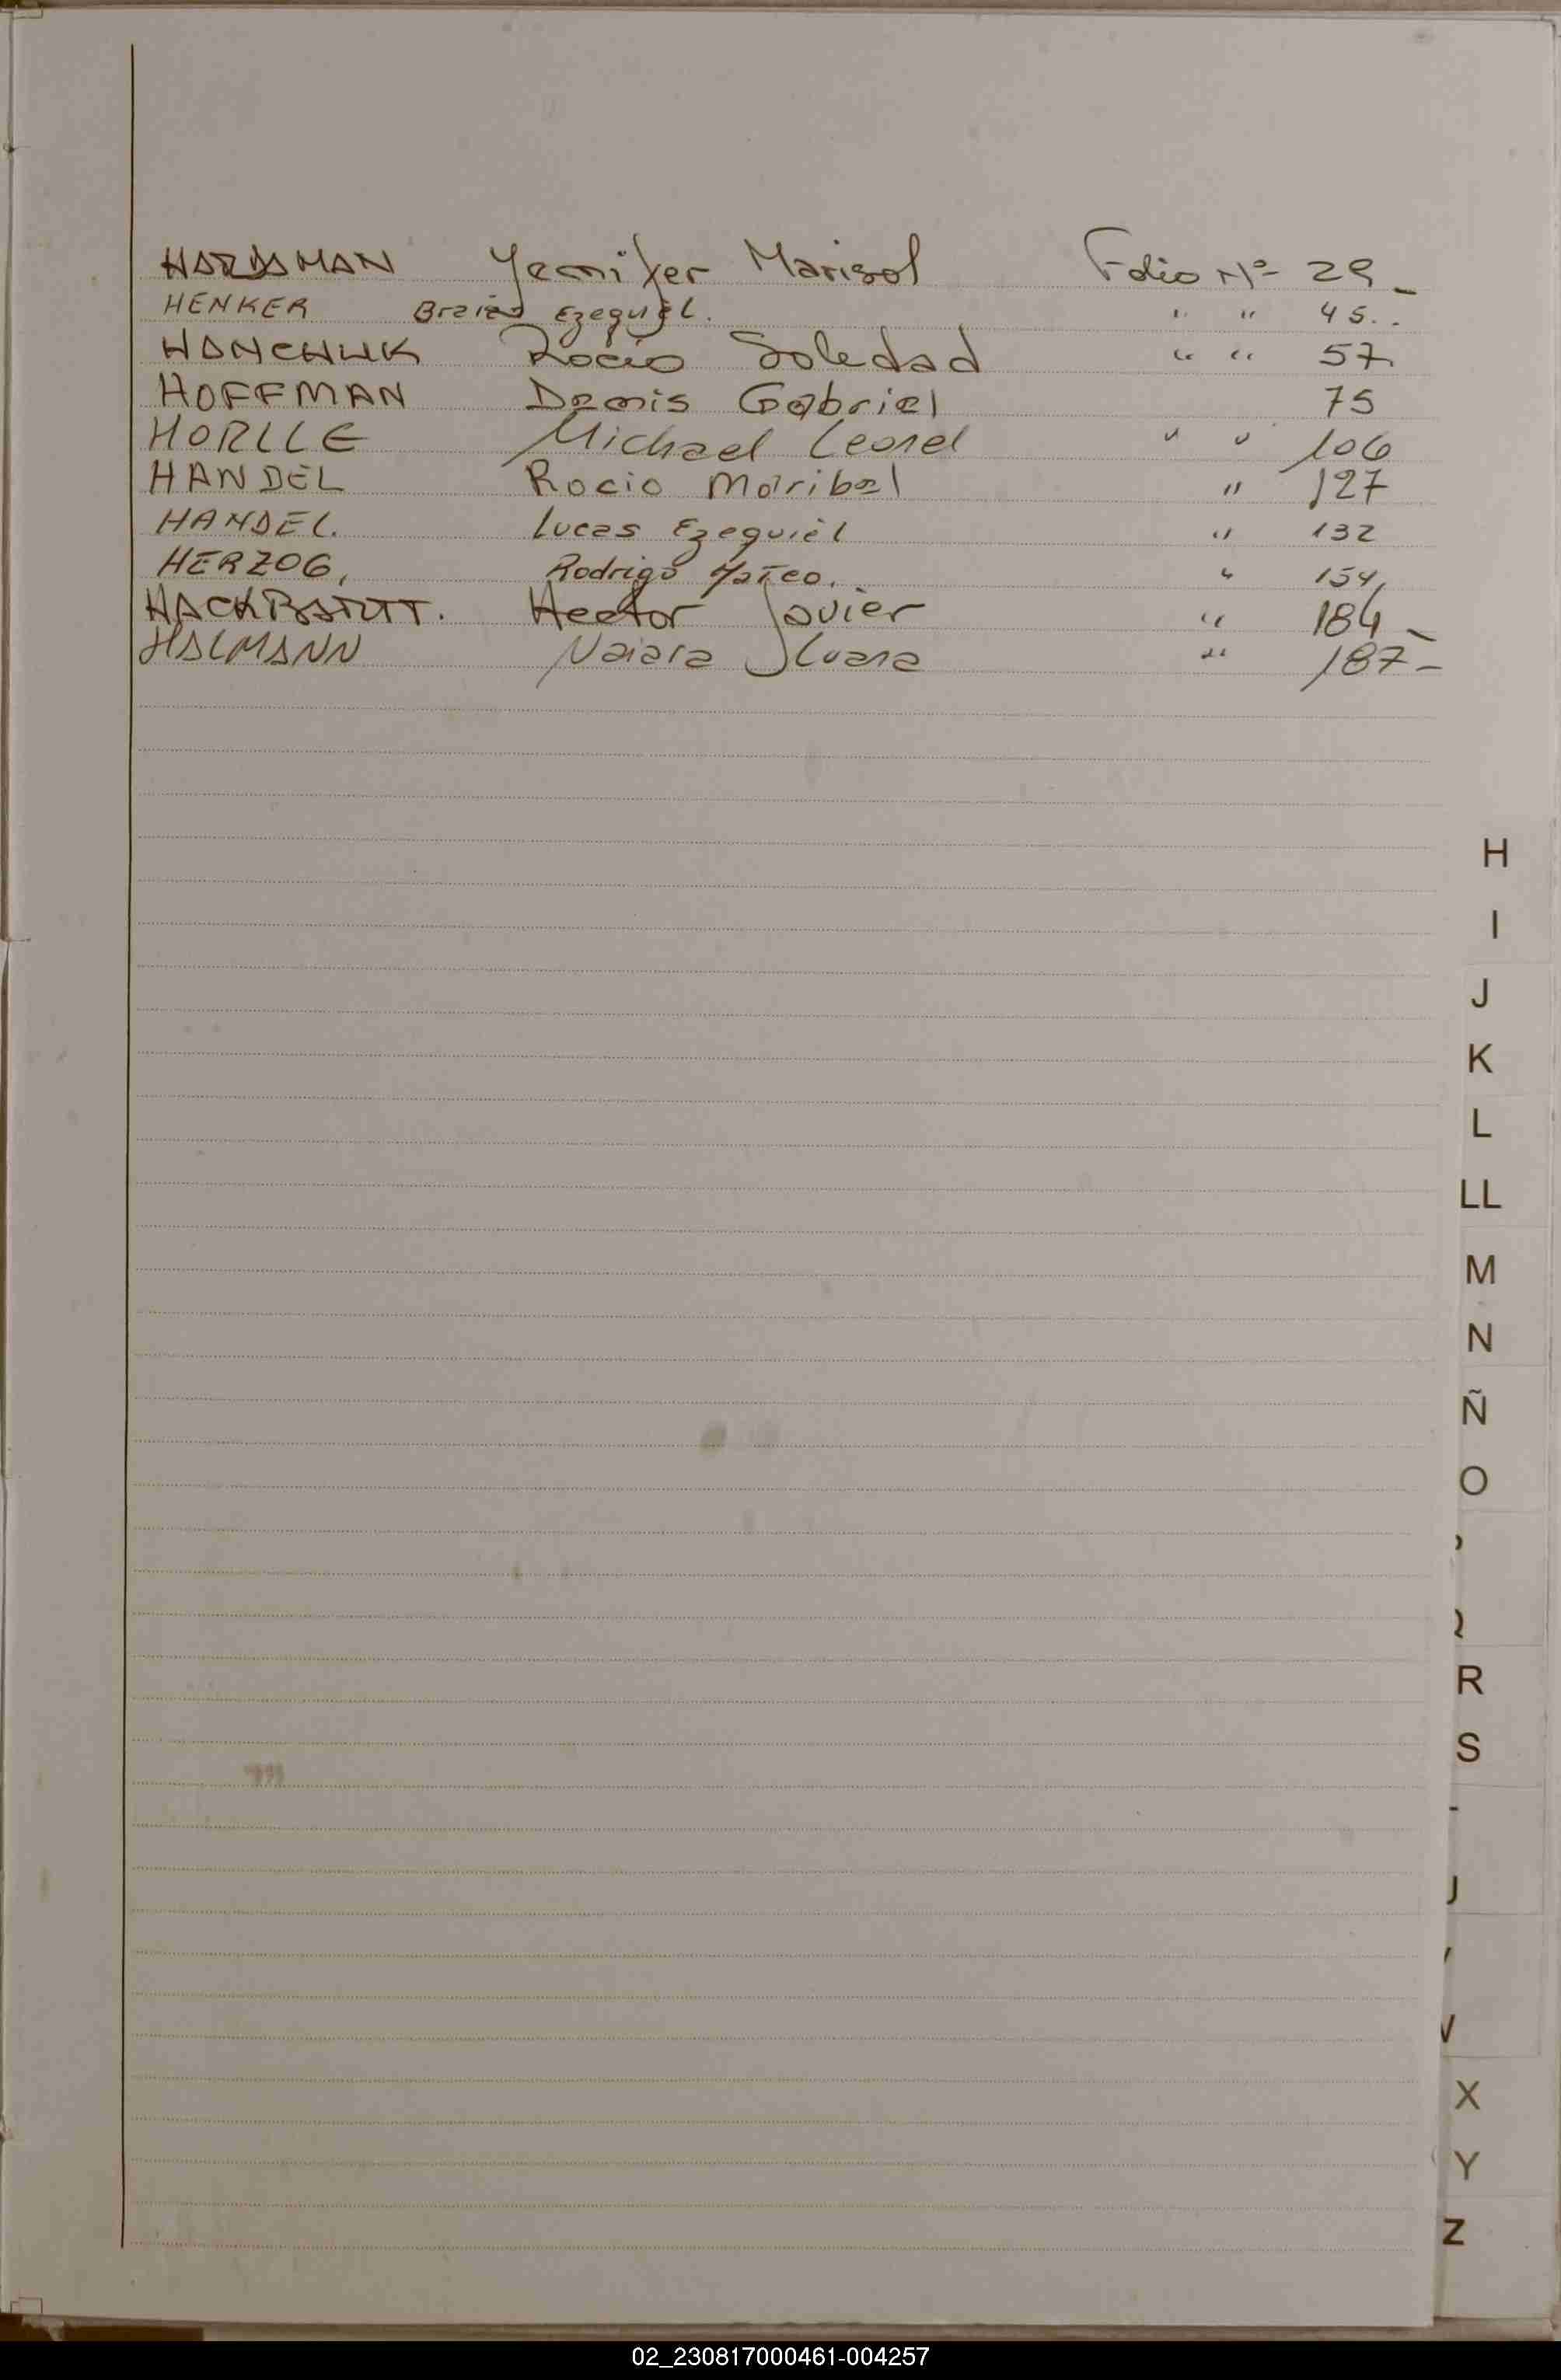 HARDAMAN Yemifer Marisol Folio Nº 29_
HENKER Braian Ezequiel. " " 45..
HANCHUK Rocio Soledad " " 57.
HOFFMAN Denis Gabriel 75
HORLLE Michael Leonel " " 106
HANDEL Rocio Maribel " 127
HANDEL. Lucas Ezequiel " 132
HERZOG, Rodrigo Mateo. " 154,
Hector Javier " 184_
HALMANN Naiara Iluana " 187-
H
I
J
K
L
LL
M
N
Ñ
O
R
S
X
Y
Z
02_230817000461-004257